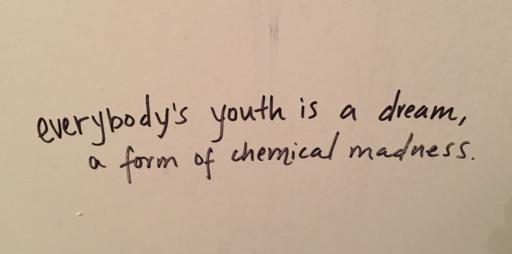 everybody's youth is a dream,
a form of chemical madness.